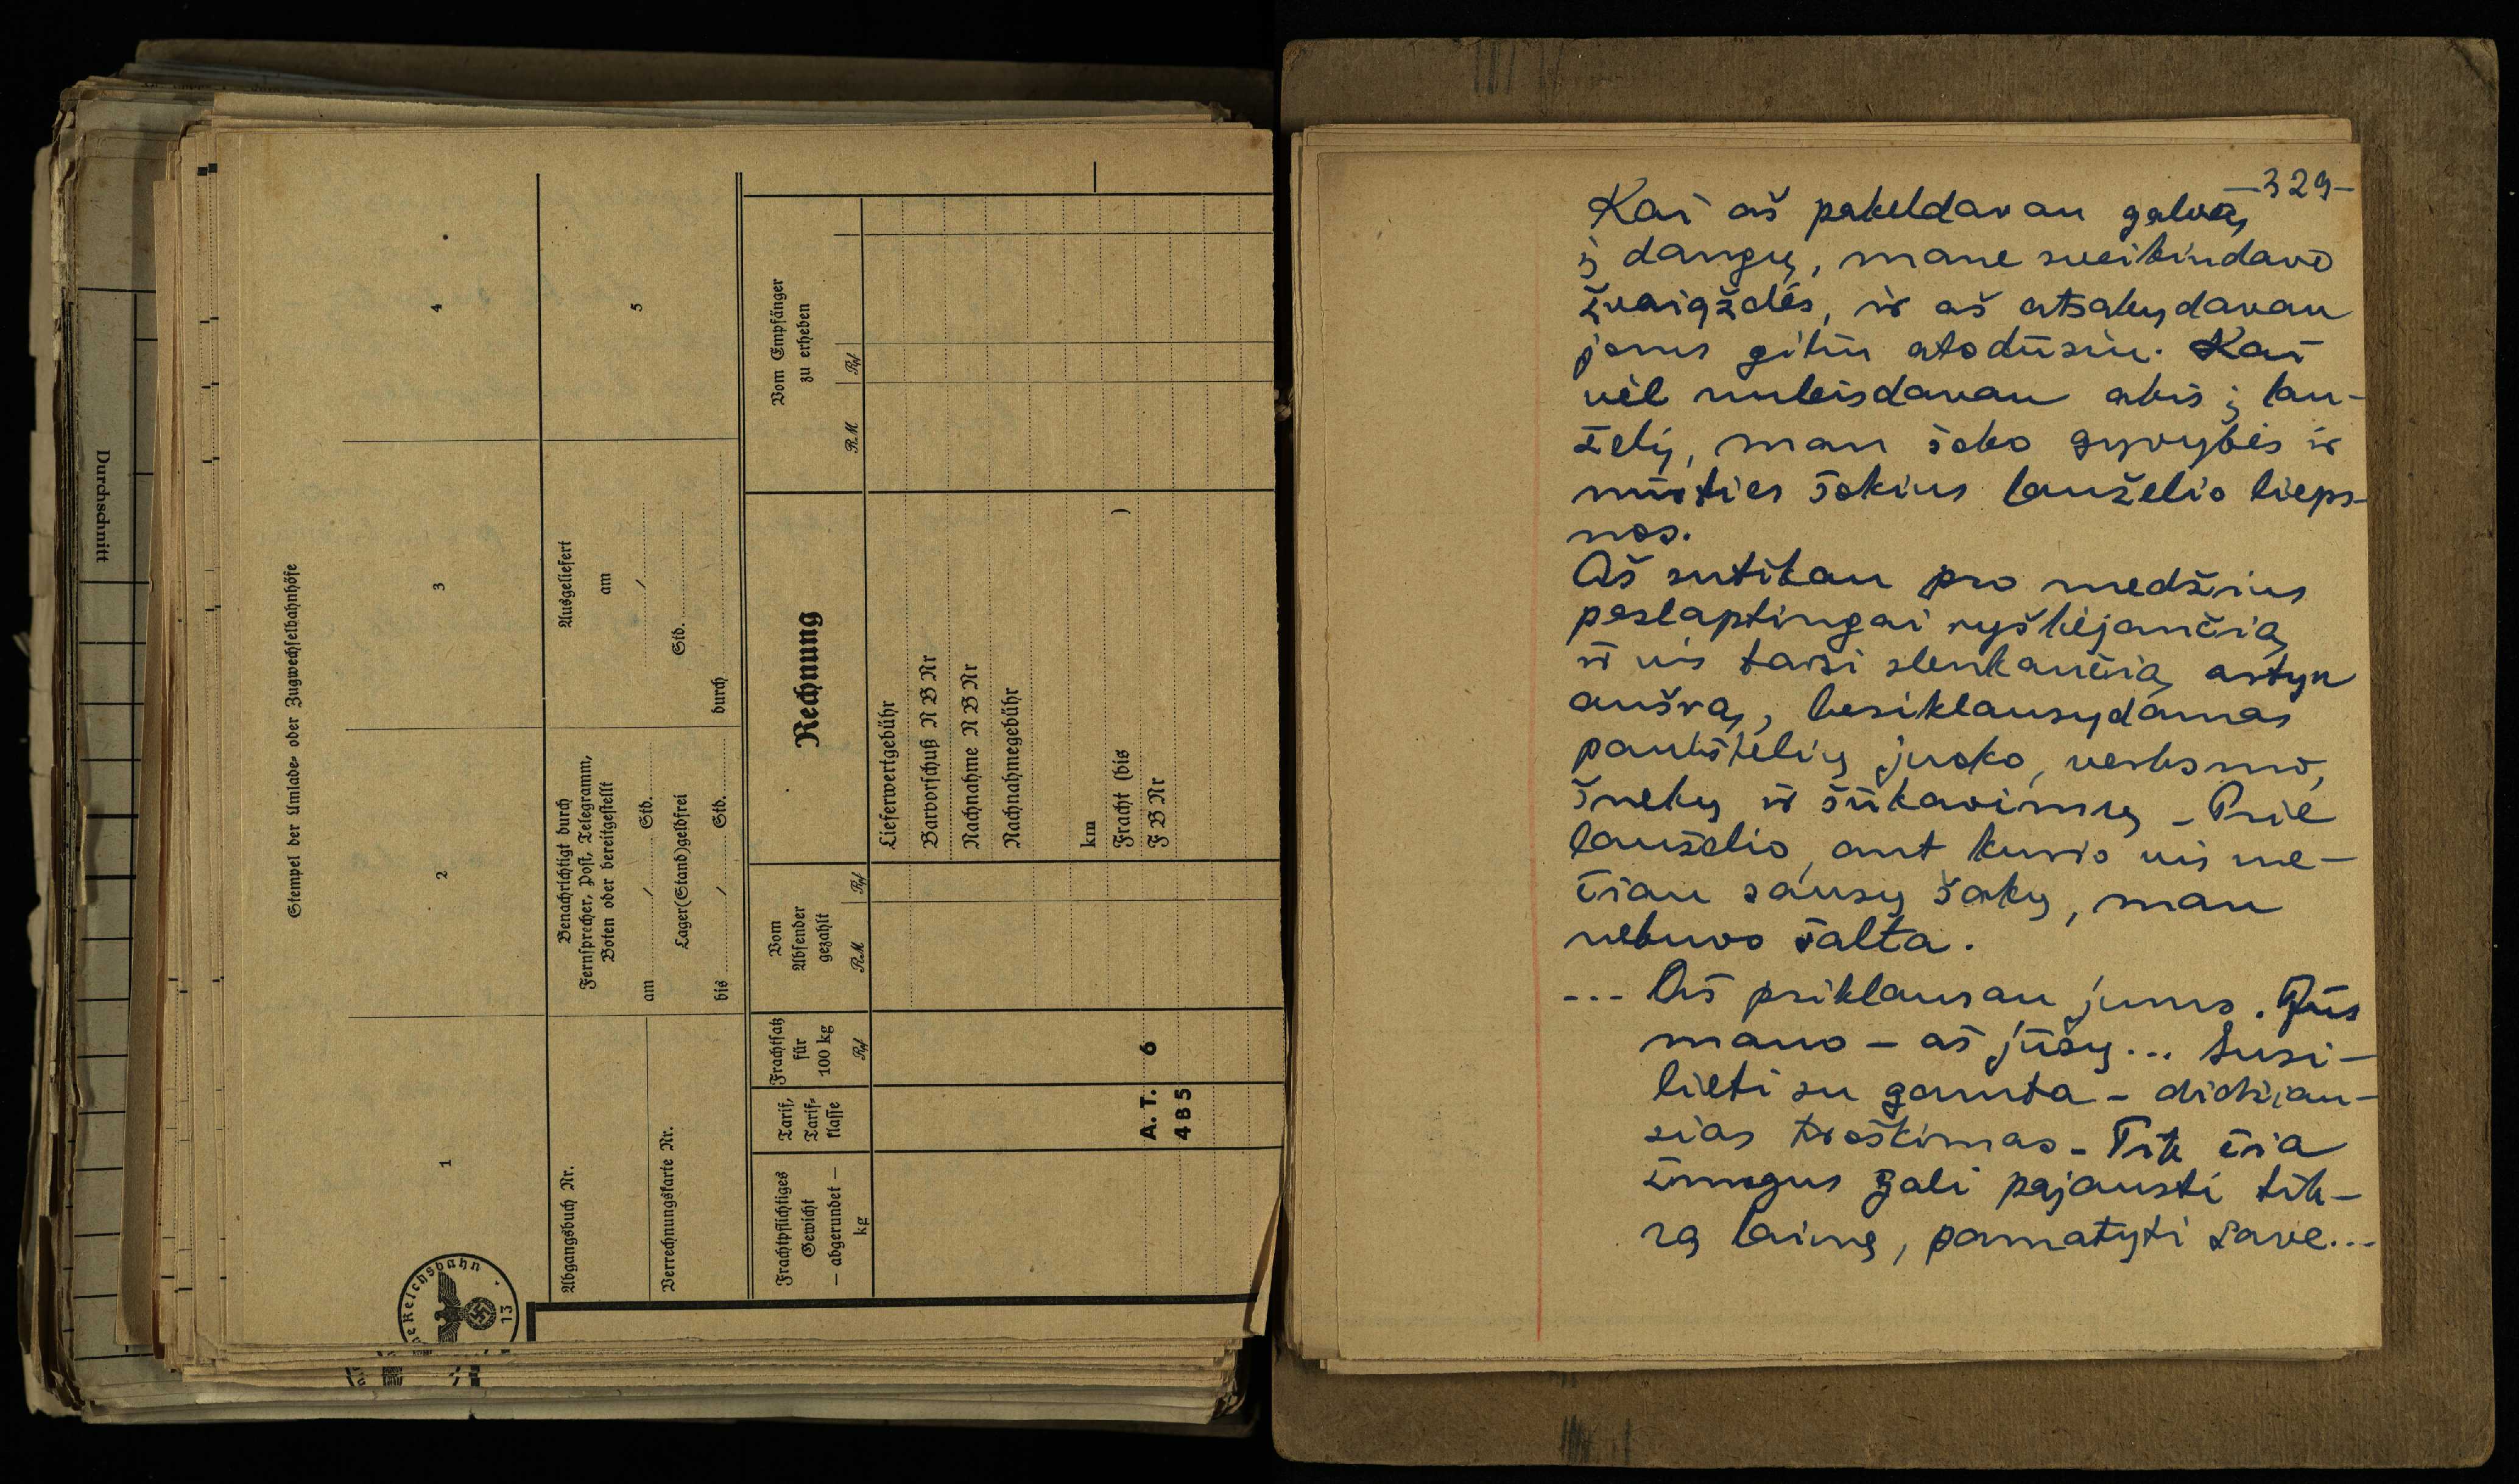 Durchschnitt
Stempel der Umlade- oder Zugwechselbahnhöfe
1
2
3
4
Abgangsbuch Nr.
Verrechnungskarte Nr.
Benachrichtigt durch
Fernsprecher, Post, Telegramm,
Boten oder bereitgestellt
am / Std.
Lager(Stand)geldfrei
bis / Std.
Ausgeliefert
am
/
Std.
durch
5
Frachtpflichtiges
Gewicht
— abgerundet —
kg
Tarif,
Tarif-
klasse
Frachtsatz
für
100 kg
Rpf
Vom
Absender
gezahlt
RM Rpf
Rechnung
Vom Empfänger
zu erheben
RM Rpf
Lieferwertgebühr
Barvorschuß N B Nr
Nachnahme N B Nr
Nachnahmegebühr
km
Fracht (bis )
F B Nr
A. T. 6
4 8 5
he Reichsbahn
13
—329—
Kai aš pakeldavau galvą
į dangų, mane sveikindavo
žvaigždės, ir aš atsakydavau
joms giliu atodūsiu. Kai
vėl nuleisdavau akis į lau-
želį, man šoko gyvybės ir
mirties šokius lauželio lieps-
nos.
Aš sutikau pro medžius
paslaptingai ryškėjančią
ir vis tarsi slenkančią artyn
aušrą, besiklausydamas
paukštelių juoko, verksmo,
šnekų ir šūkavimų – Prie
lauželio, ant kurio vis me-
čiau sausų šakų, man
nebuvo šalta.
... Aš priklausau jums. Jūs
mano – aš jūsų... Susi-
lieti su gamta – didžiau-
sias troškimas – Tik čia
žmogus gali pajausti tik-
rą laimę, pamatyti save...